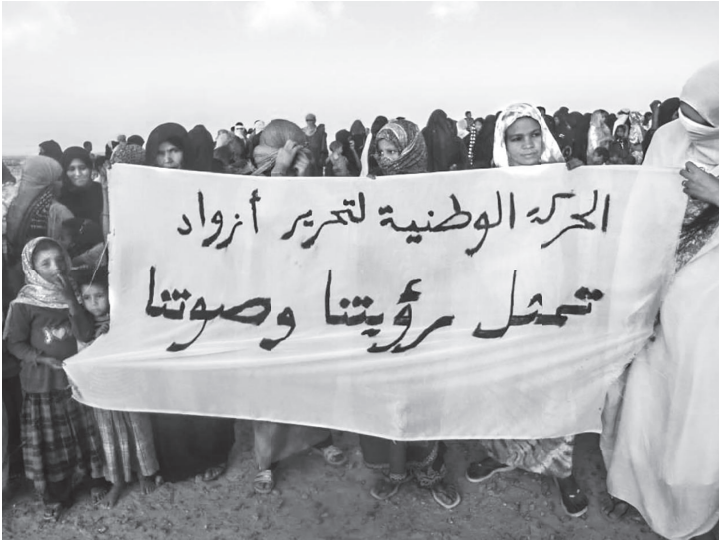 الحركة الوطنية لتحرير أزواد
تمثل رؤيتنا وصوتنا